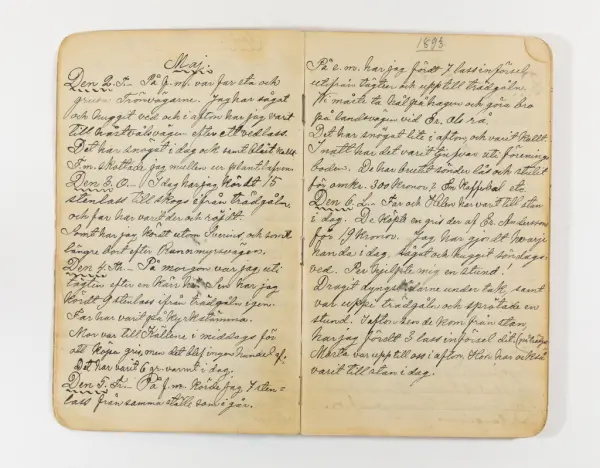 Maj.
Den 2. T. På f.m. var far sta och
grusa Trönvägarne. Jag har sågat
och huggit ved och i afton har jag varit
till efter ett vedlass.
Det har snögat i dag och samt blåst kallt
F.m. skottade jag mullen ur plantlafven
Den 3. O. I dag har jag kördt 15
stenlass till skogs ifrån trädgåln
och far har varit der och röjdt.
Samt har jag kördt utom och somt
längre bort efter Rammyrsvägen.
Den 4. Th. På morgon var jag uti
tägten efter en Sen har jag
kördt 9 stenlass ifrån trädgåln igen.
Far har varit på kyrkstämma.
Mor var till Källene i middags för
att köpa gris, men det blef ingen handel af.
Det har varit 6 gr. varmt i dag.
Den 5. Fr. På f.m. körde jag 4 sten=
lass från samma ställe som i går.
1893
På e.m. har jag fördt 7 lass införsel
utifrån tägten och upp till trädgåln.
Vi måste ta hål på hagen och göra bro
på landsvägen vid Er. Ols rå.
Det har snögat lite i afton och varit kallt.
I natt har det varit tjufvar uti förenings
boden. De har brutit sönder lås och stulit
för omkr. 300 kronor. En Kaffebal etc
Den 6. L. Far och Ellen har varit till stan
i dag. De köpte en gris der af Er. Andersson
för 19 kronor. Jag har gjordt
handa i dag. Sågat och huggit söndags
ved. Per hjelpte mig en stund!
Dragit dyngslädarne under tak samt
var uppi trädgåln och sprätade en
stund. I afton sen de kom från stan
har jag fördt 3 lass införsel dit.
Marta var upp till oss i afton. Hon har också
varit till stan i dag.